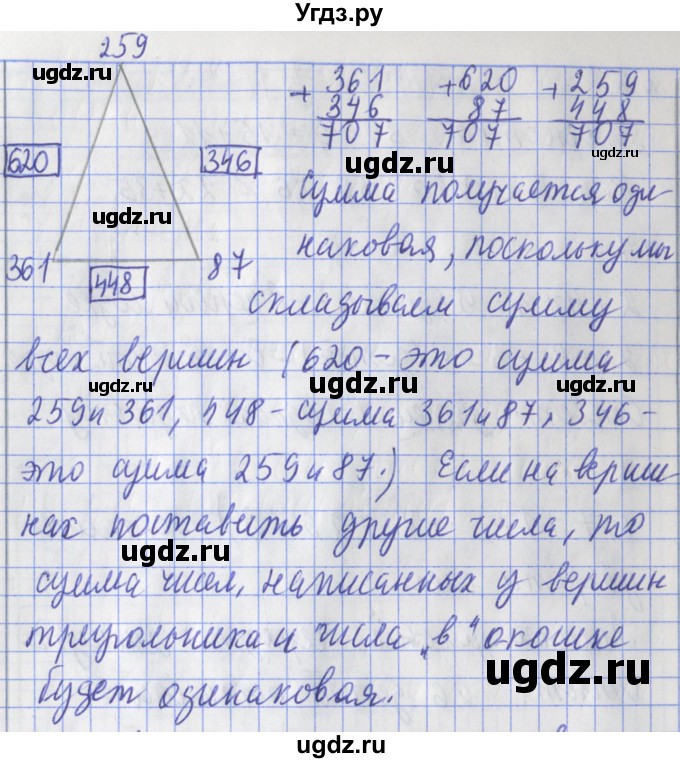 Угдз.ру
259
ugdz.ru
361 620 259
+ + +
346 87 448
707 707 707
ugdz.ru
ugdz.ru
620 346
ugdz.ru
Сумма получается оди-
361 87 наковая, поскольку мы
448
ugdz.ru
складываем сумму
всех вершин (620 - это сумма
ugdz.ru ugdz.ru
259 и 361, 448 - сумма 361 и 87, 346 -
это сумма 259 и 87.) Если на верши-
ugdz.ru
нах поставить другие числа, то
ugdz.ru
сумма чисел, написанных у вершин
треугольника и числа "в" окошке
ugdz.ru
будет одинаковая.
ugdz.ru
ugdz.ru